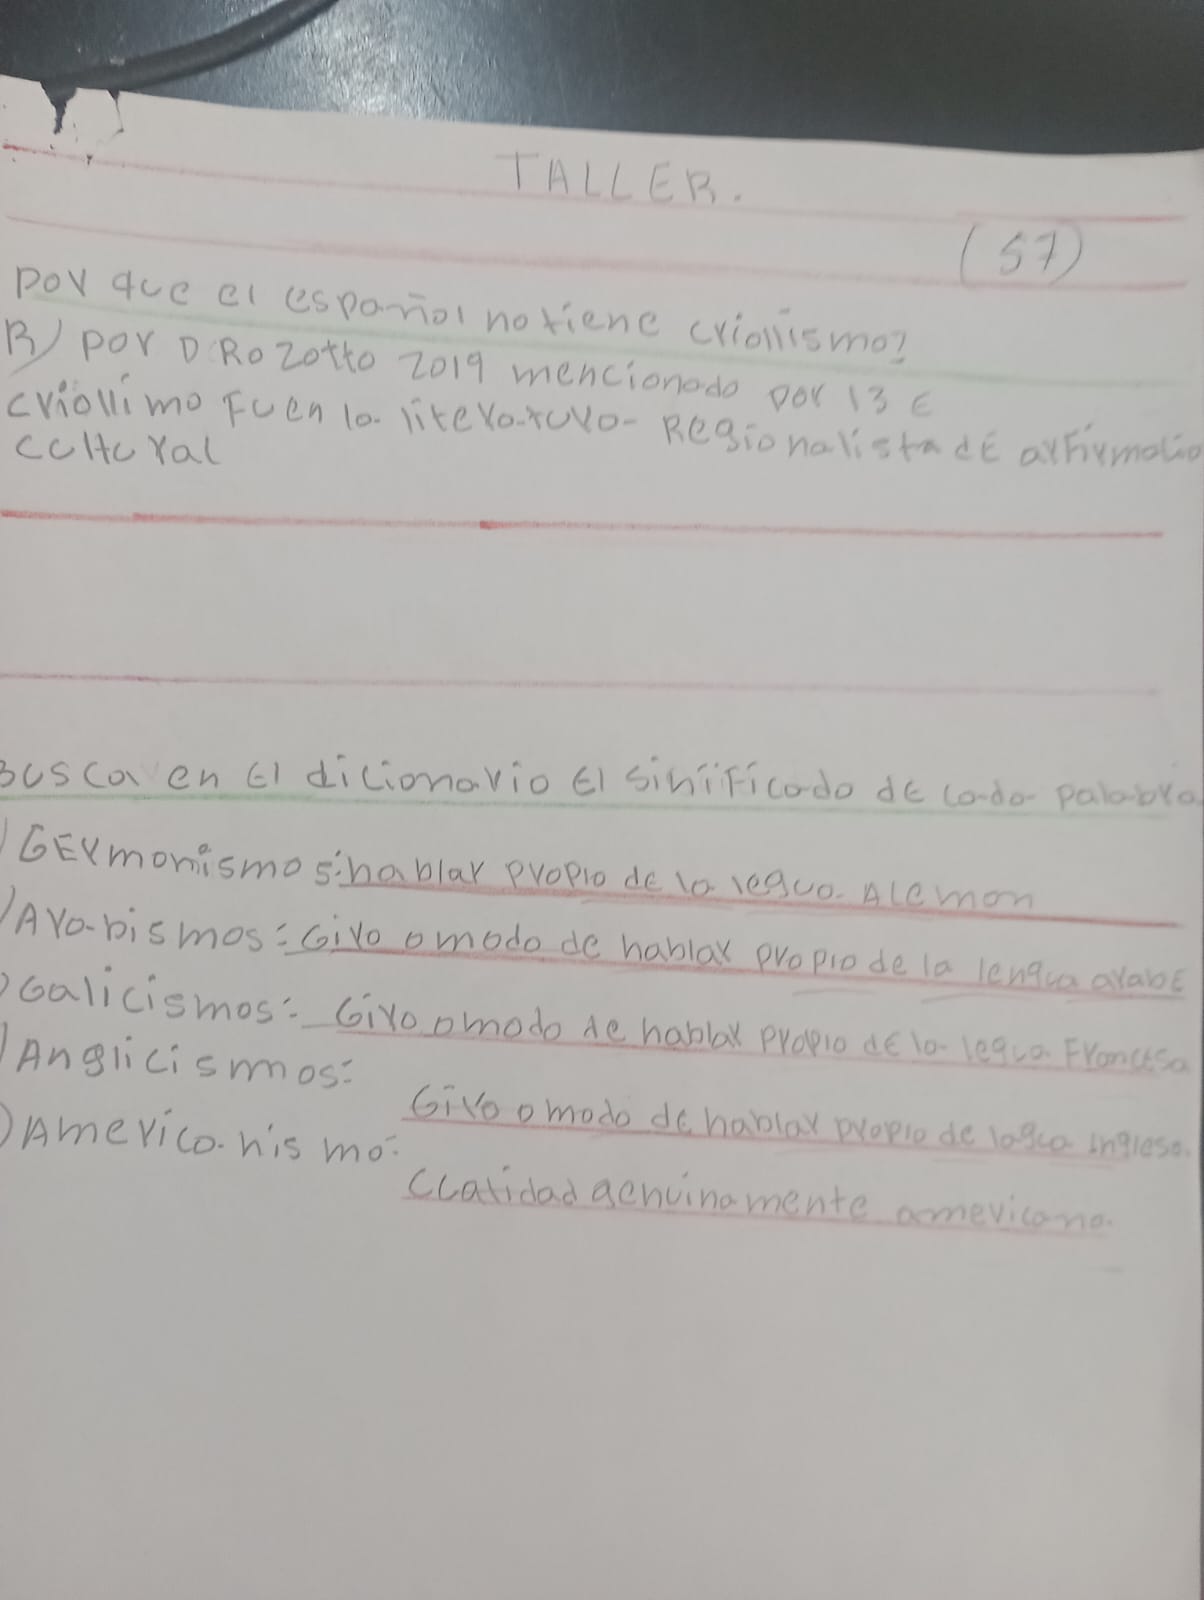 TALLER.
(57)
por que el español no tiene criollismo?
R) por D Rozotto 2019 mencionado por 13 E
criollimo Fu en la literatura Regionalista dE arfirmatio
cultural
Busca en El dicionario El sinificado de cada palabra
GErmanismos: hablar propio de la legua Aleman
Arabismos: Giro o modo de hablar propio de la lengua arabe
Galicismos: Giro o modo de hablar propio dE la legua Francesa
Anglicismos:
Giro o modo de hablar propio de lagua inglesa.
Americanismo:
Cualidad genuinamente americana.